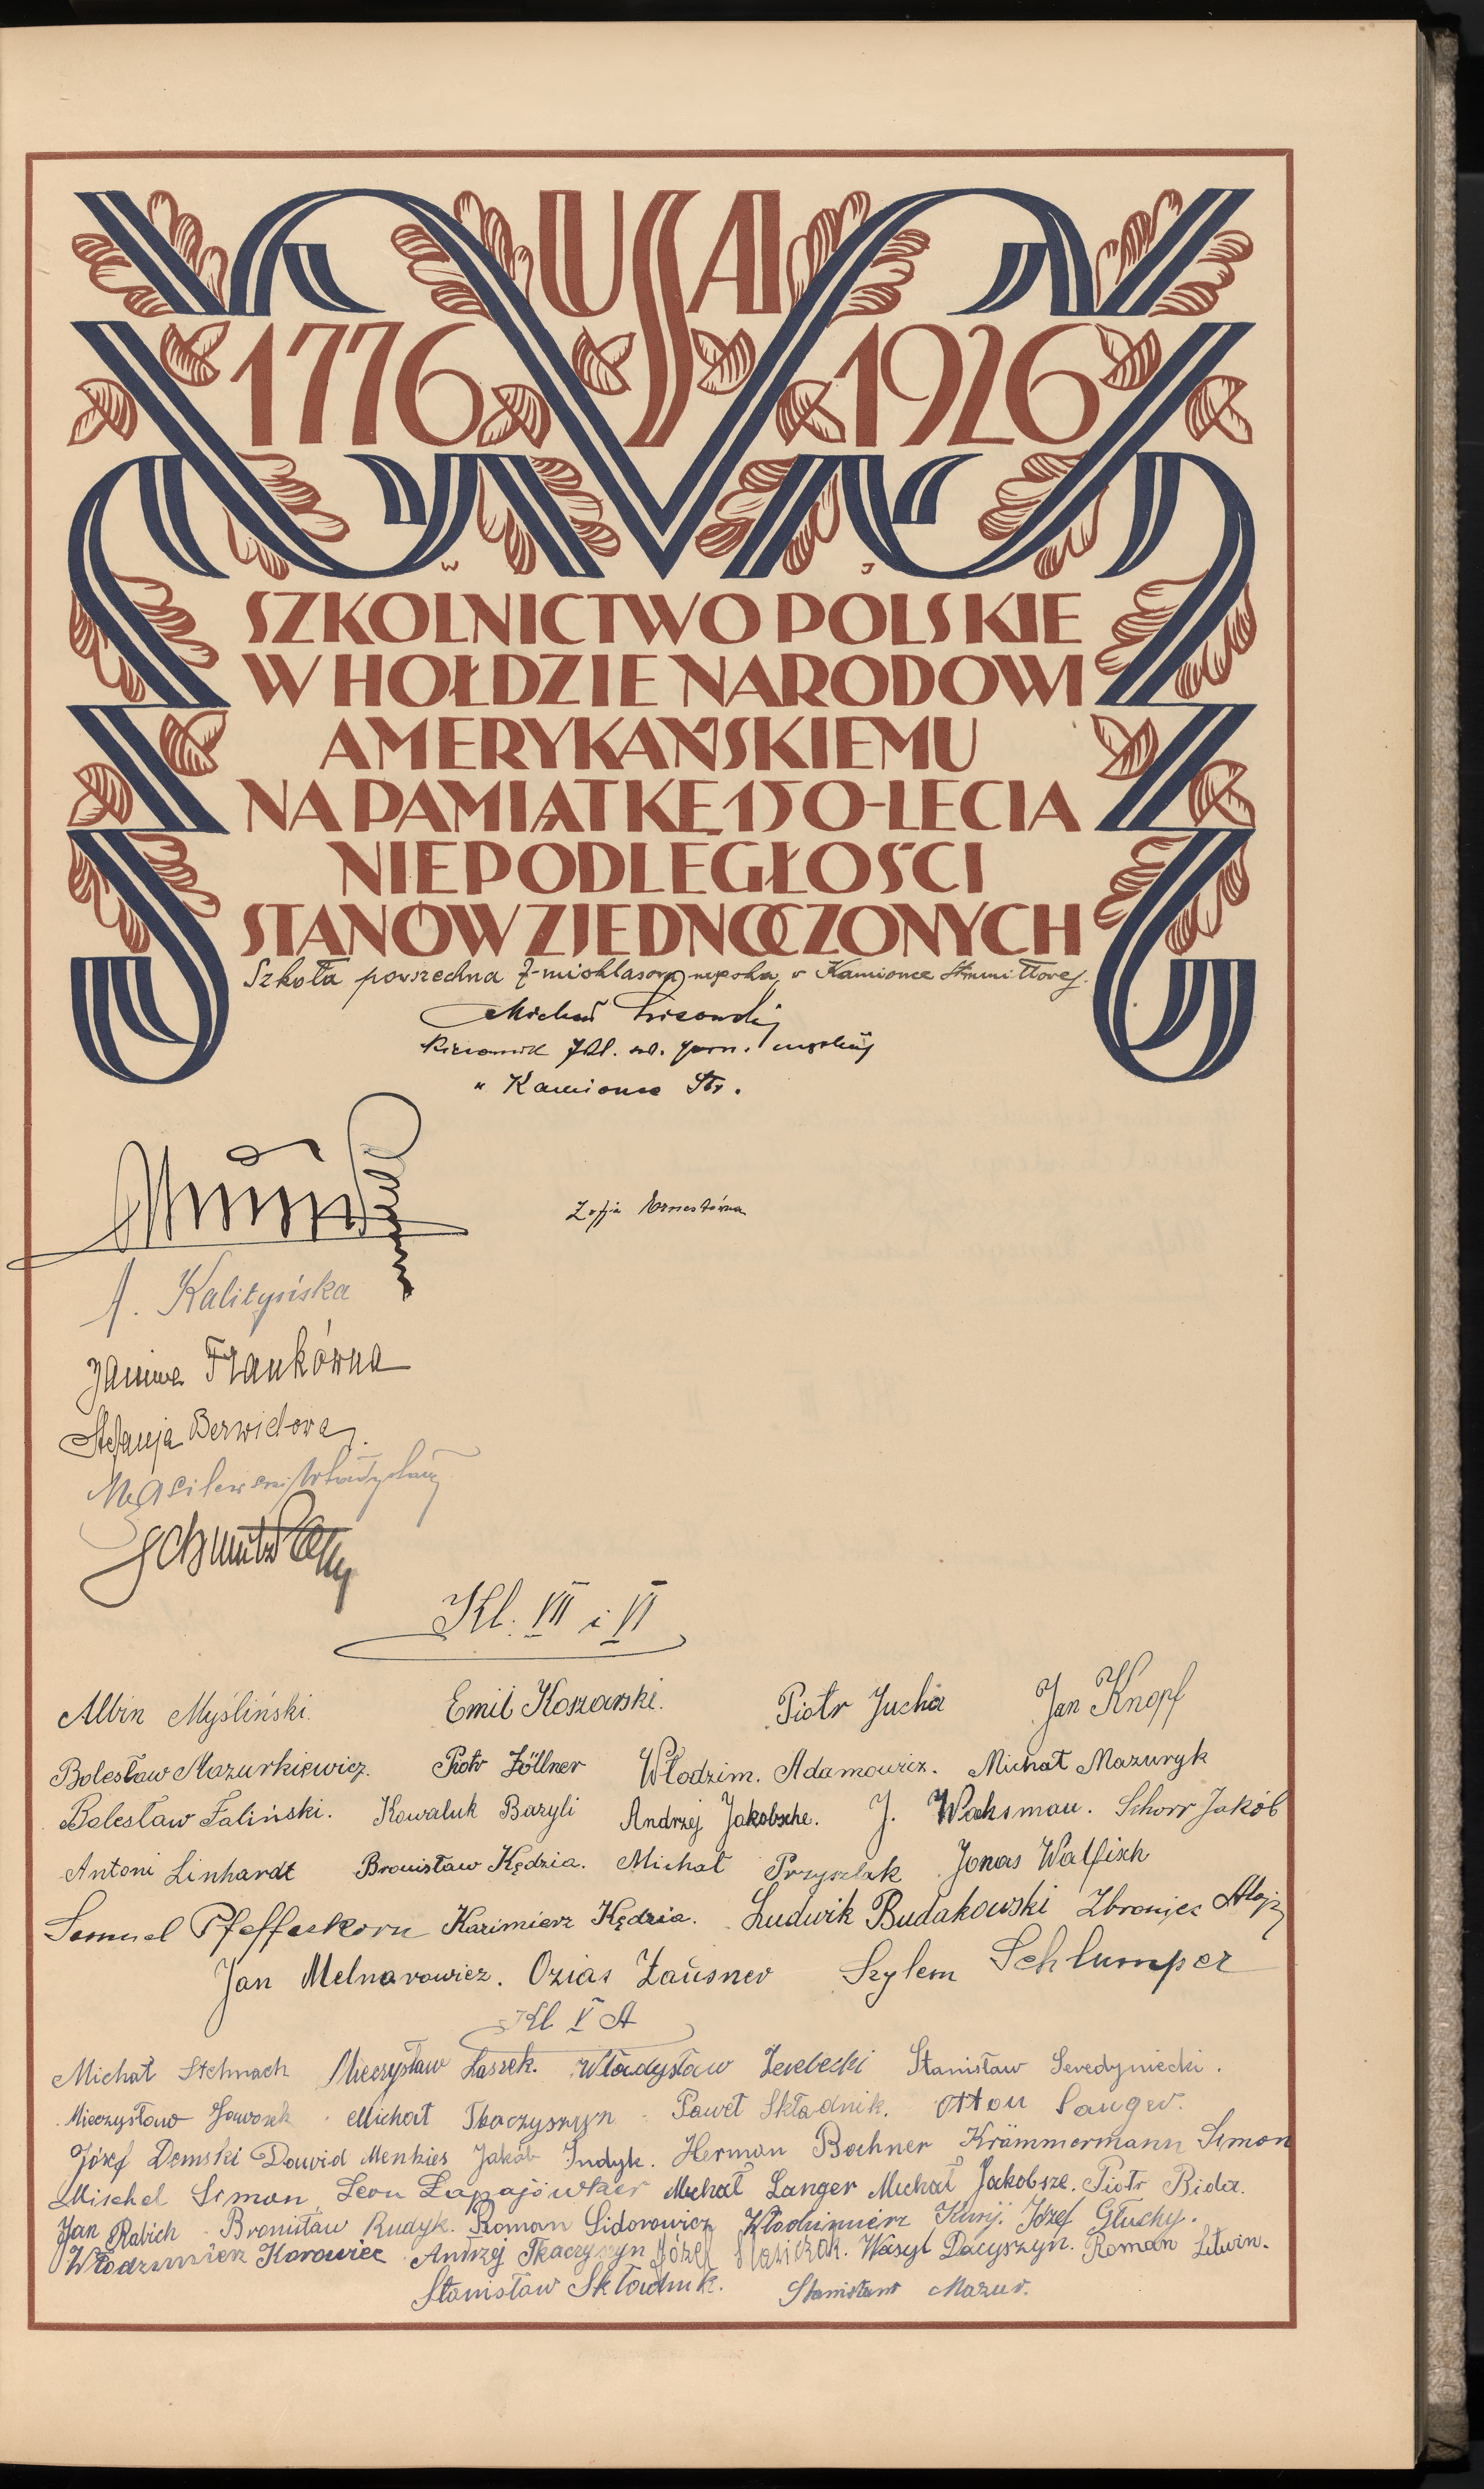 USA
1776 1926
SZKOLNICTWO POLSKIE
W HOŁDZIE NARODOWI
AMERYKAŃSKIEMU
NA PAMIĄTKĘ 150-LECIA
NIEPODLEGŁOŚCI
STANÓW ZJEDNOCZONYCH
Szkoła powszechna 7-mioklasowa męska w Kamionce Strumiłłowej.
Michał Lisowski
Kierownik 7kl. męskiej
w Kamionce Str.
Zofja Ernestówna
A. Kalityńska
Janina Frankówna
Stefanja Berwidowa
Wasilewski Władysław
Schmidt
Kl. VII i VI
Albin Myśliński. Emil Koszarski. Piotr Jucha Jan Knopf
Bolesław Mazurkiewicz. Piotr Zöllner Włodzim. Adamowicz. Michał Mazuryk
Bolesław Faliński. Kowaluk Bazyli Andrzej Jakobsche. J. Waksman. Schorr Jakób
Antoni Linhardt Bronisław Kędzia. Michał Przyszlak Jonas Walfisch
Samuel Pfefferkorn Kazimierz Kędzia. Ludwik Budakowski Zbroniec Alojzy
Jan Melnarowicz. Ozias Zausner Szylem Schlumper
Kl V A
Michał Stchnach Mieczysław Laszek. Władysław Zerebecki Stanisław Seredyniecki.
Mieczysław Jaworek Michał Tkaczyszyn Paweł Składnik. Otton Langer.
Józef Demski Dawid Menkies Jakób Indyk. Herman Bochner Krämmermann Simon
Mischel Simon, Leon Łapajówker Michał Langer Michał Jakobsze. Piotr Bida.
Jan Rabich Bronisław Rudyk. Roman Sidorowicz Włodzimierz Kurij. Józef Głuchy.
Włodzimierz Korowiec Andrzej Tkaczyszyn Józef Wasyl Dacyszyn. Roman Litwin.
Stanisław Składnik. Stanisław Mazur.